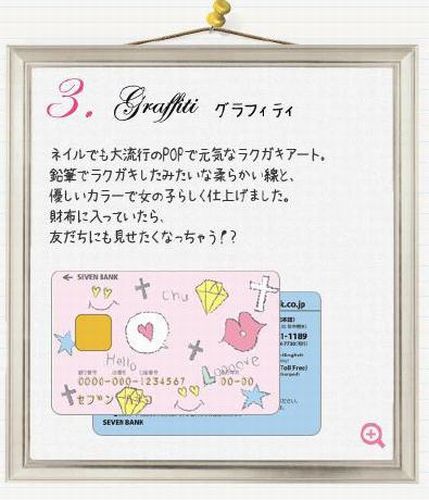 3. Graffiti グラフィティ
ネイルでも大流行のPOPで元気なラクガキアート。
鉛筆でラクガキしたみたいな柔らかい線と、
優しいカラーで女の子らしく仕上げました。
財布に入っていたら、
友だちにも見せたくなっちゃう!?
← SEVEN BANK
Chu
k.co.jp
1-1189
Hello
Loooove
Toll Free)
0000-000-1234567 00-00
セブン ハナコ
SEVEN BANK